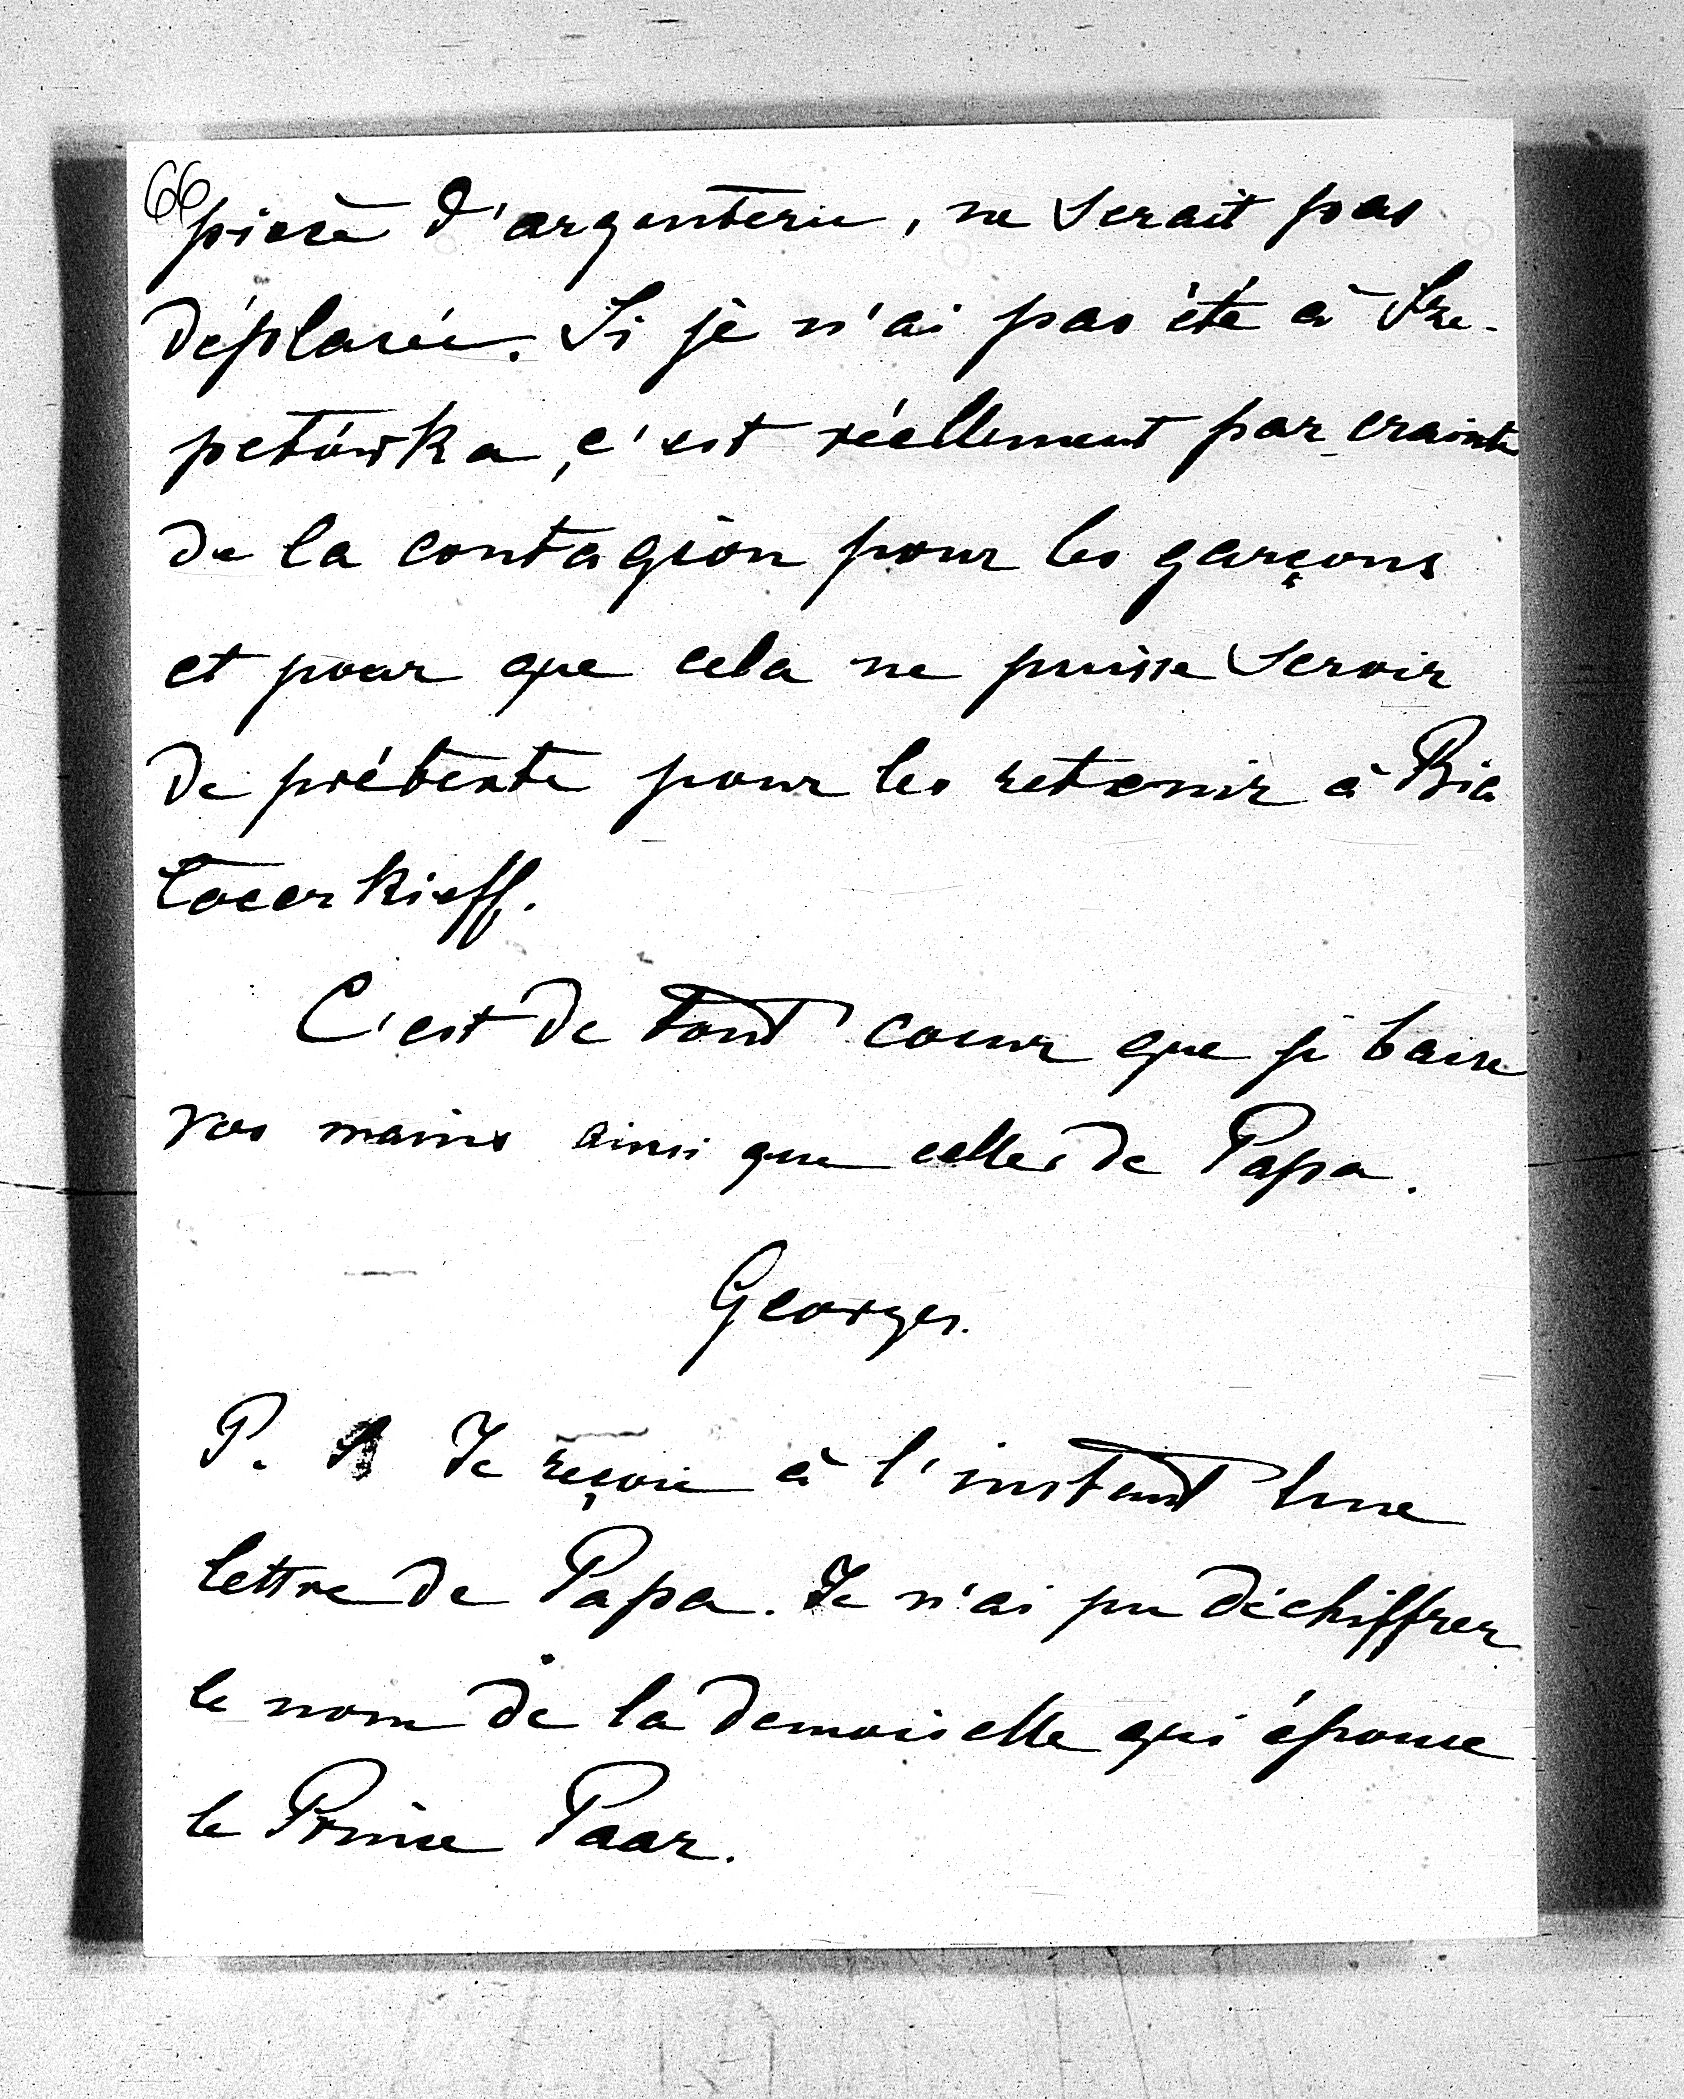 66
pièce d'argenterie, ne serait pas
déplacée. Si je n'ai pas été à Sze-
petówka, c'est réellement par crainte
de la contagion pour les garçons
et pour que cela ne puisse servir
de prétexte pour les retenir à Bia
łocerkieff.
C'est de tout coeur que je baise
vos mains ainsi que celles de Papa.
Georges.
P. S Je reçois à l'instant une
lettre de Papa. Je n'ai pu déchiffrer
le nom de la demoiselle qui épouse
le Prince Paar.